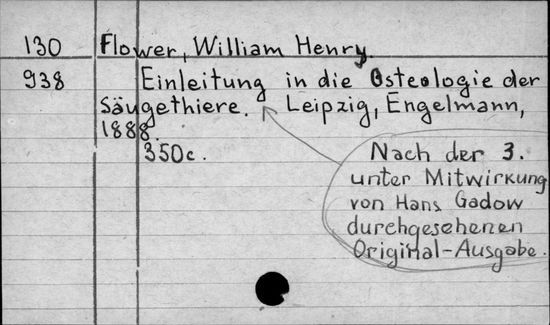 130 Flower, William Henry.
938 Einleitung in die Osteologie der
Säugethiere. Leipzig, Engelmann,
1888.
350c.
Nach der 3.
unter Mitwirkung
von Hans Gadow
durchgesehenen
Original-Ausgabe.